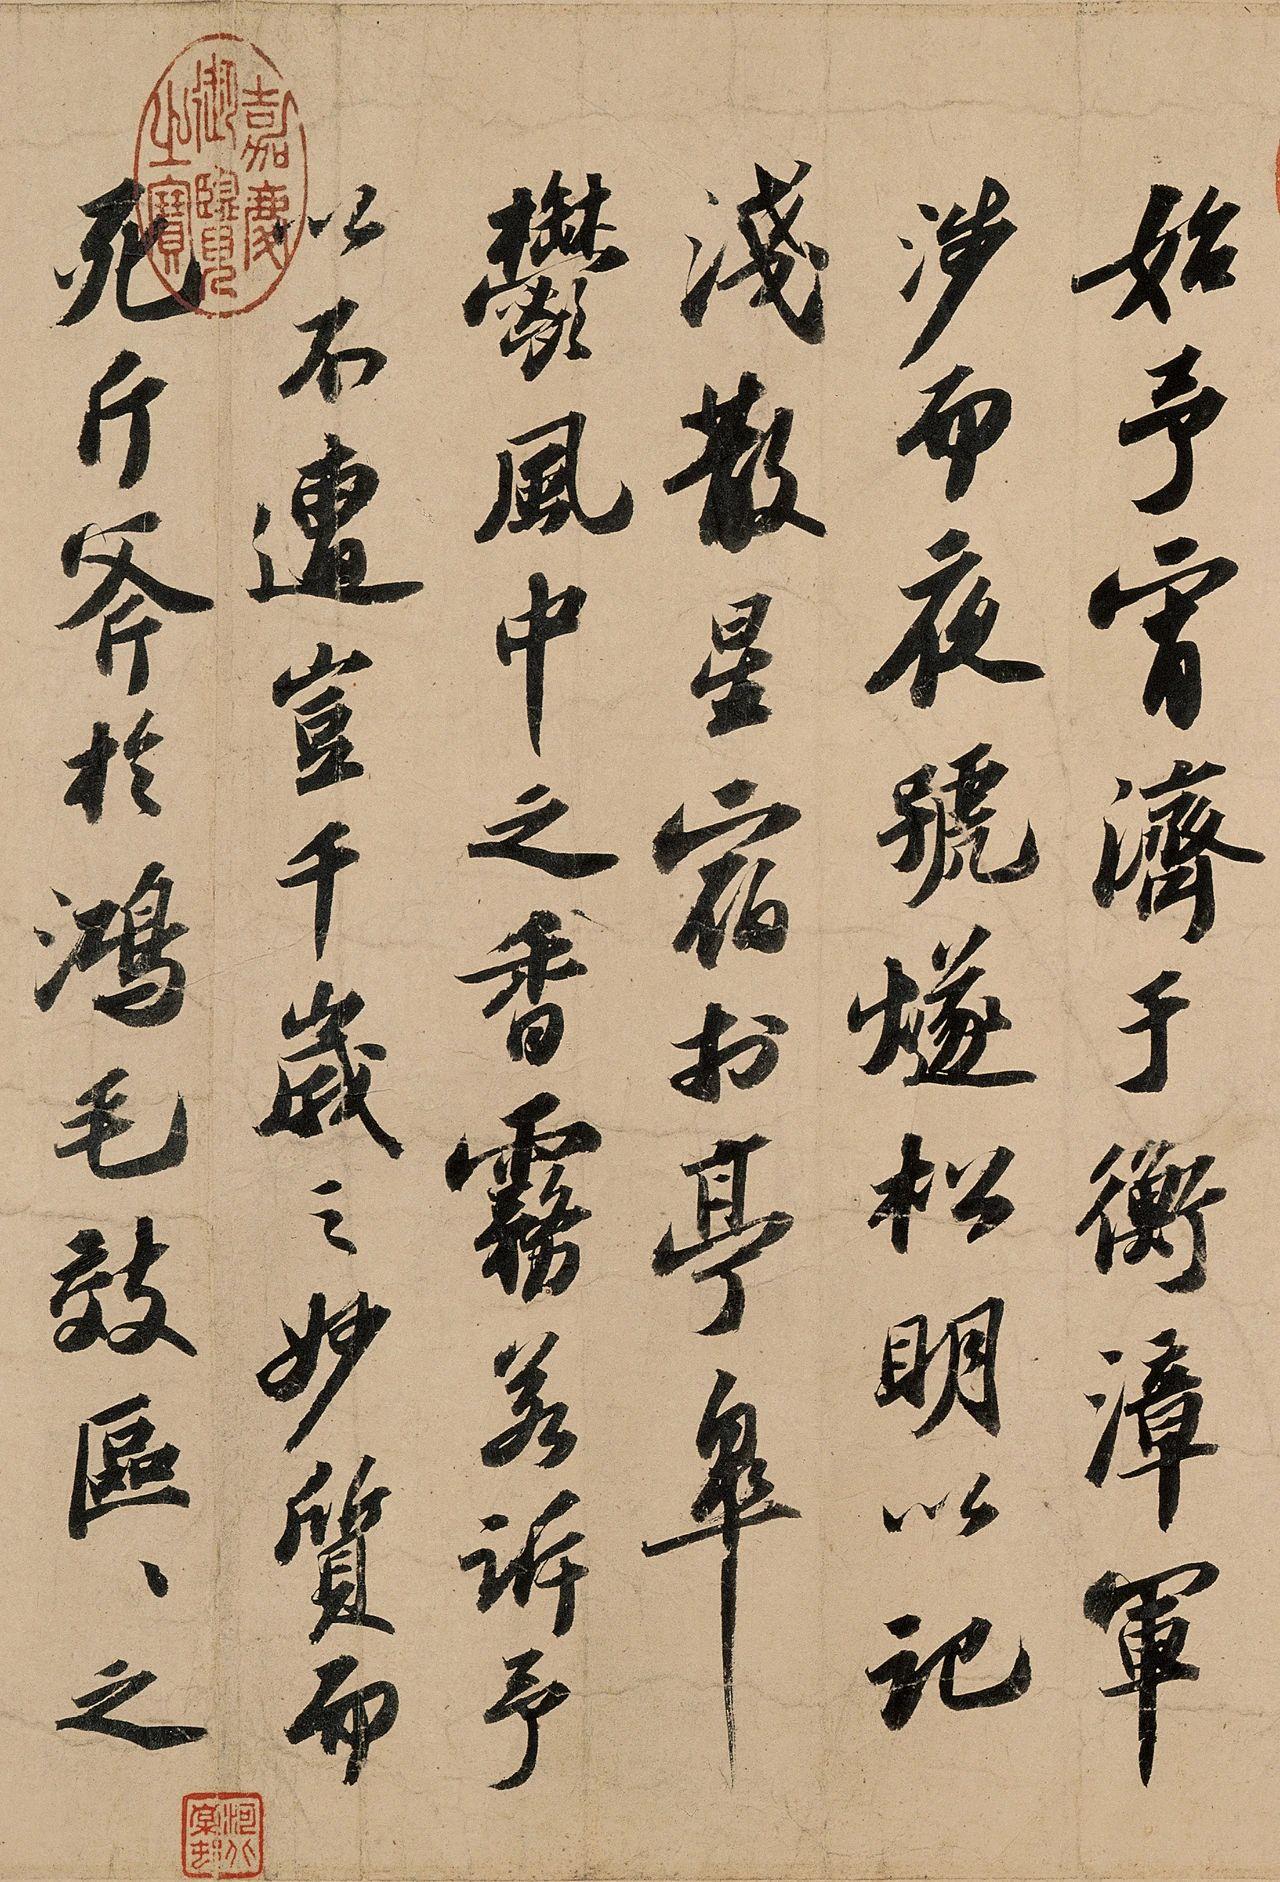 始予宵濟于衡漳軍
涉而夜號燧松明以記
淺散星宿於亭皋
鬱風中之香霧若訴予
以不遭豈千歲之妙質而
死斤斧於鴻毛效區〻之
嘉慶
御覽
之寶